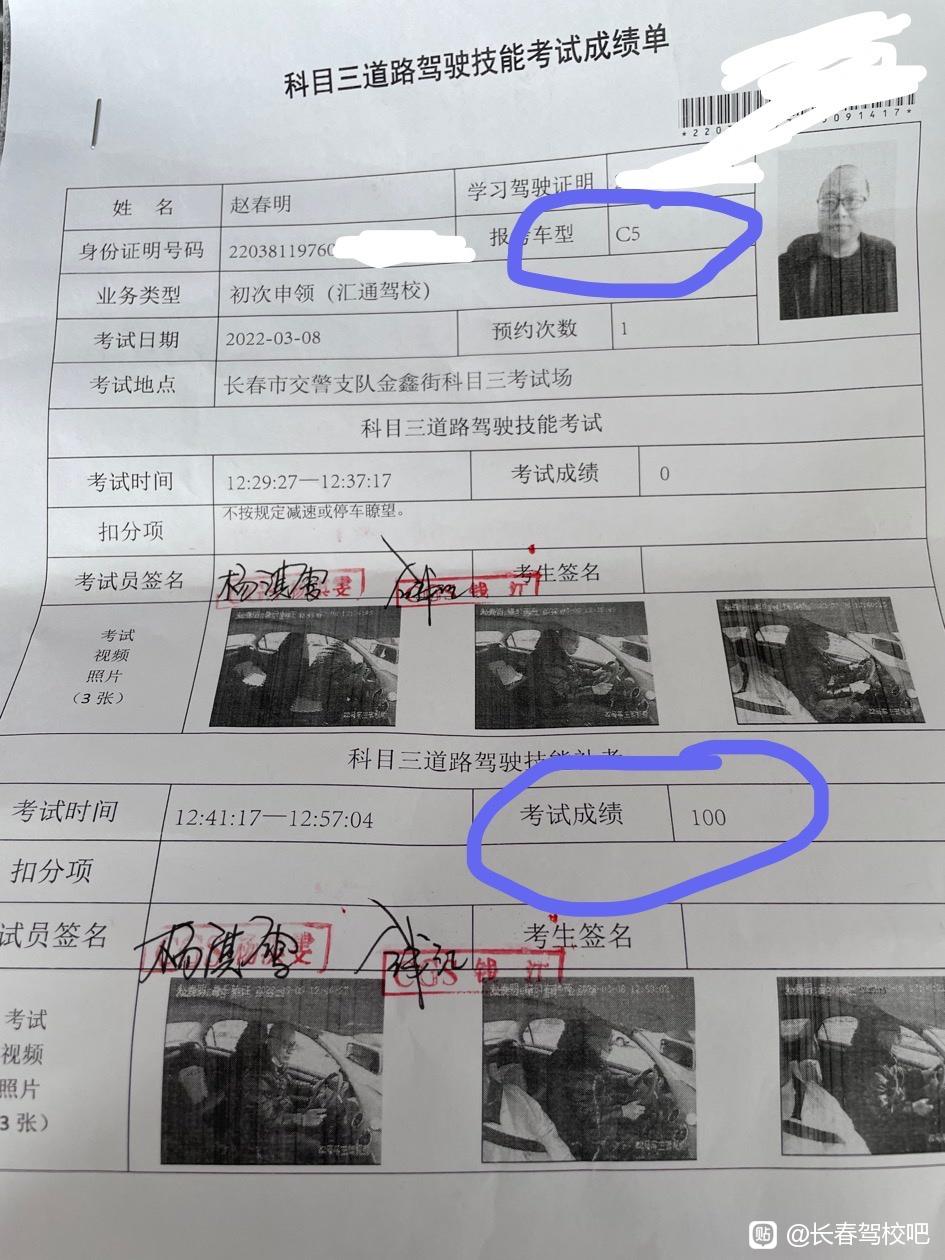 科目三道路驾驶技能考试成绩单
091417*
姓 名 赵春明 学习驾驶证明
身份证明号码 22038119760 报考车型 C5
业务类型 初次申领（汇通驾校）
考试日期 2022-03-08 预约次数 1
考试地点 长春市交警支队金鑫街科目三考试场
科目三道路驾驶技能考试
考试时间 12:29:27—12:37:17 考试成绩 0
扣分项 不按规定减速或停车瞭望。
考试员签名 杨淇雯 钱江 考生签名
考试
视频
照片
（3 张）
科目三道路驾驶技能补考
考试时间 12:41:17—12:57:04 考试成绩 100
扣分项
试员签名 杨淇雯 CGS 钱江 考生签名
考试
视频
照片
3 张）
贴 @长春驾校吧